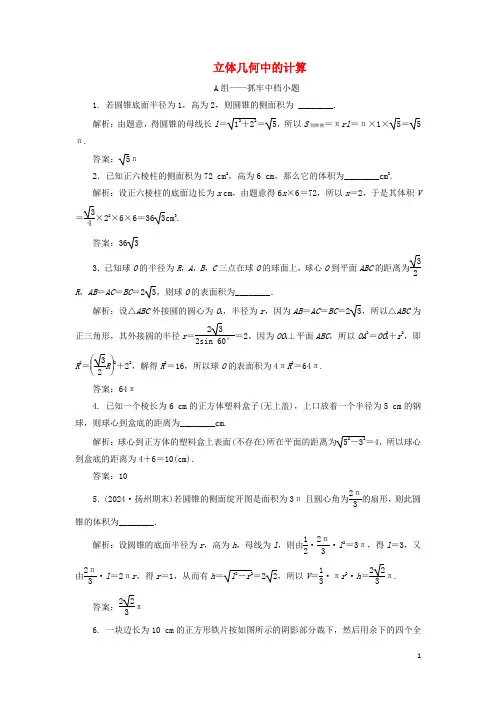 立体几何中的计算
A组——抓牢中档小题
1. 若圆锥底面半径为1，高为2，则圆锥的侧面积为 ________.
解析：由题意，得圆锥的母线长 l＝√(1²＋2²)＝√5，所以 S圆锥侧＝πrl＝π×1×√5＝√5
π.
答案：√5π
2．已知正六棱柱的侧面积为72 cm²，高为6 cm，那么它的体积为________cm³.
解析：设正六棱柱的底面边长为 x cm，由题意得 6x×6＝72，所以 x＝2，于是其体积 V
＝√3/4×2²×6×6＝36√3cm³.
答案：36√3
3．已知球 O 的半径为 R，A，B，C 三点在球 O 的球面上，球心 O 到平面 ABC 的距离为√3/2
R，AB＝AC＝BC＝2√3，则球 O 的表面积为________．
解析：设△ABC 外接圆的圆心为 O₁，半径为 r，因为 AB＝AC＝BC＝2√3，所以△ABC 为
正三角形，其外接圆的半径 r＝2√3/(2sin 60°)＝2，因为 OO₁⊥平面 ABC，所以 OA²＝OO₁²＋r²，即
R²＝(√3/2R)²＋2²，解得 R²＝16，所以球 O 的表面积为 4πR²＝64π.
答案：64π
4. 已知一个棱长为6 cm的正方体塑料盒子(无上盖)，上口放着一个半径为5 cm的钢
球，则球心到盒底的距离为________cm.
解析：球心到正方体的塑料盒上表面(不存在)所在平面的距离为√(5²－3²)＝4，所以球心
到盒底的距离为4＋6＝10(cm)．
答案：10
5．(2024·扬州期末)若圆锥的侧面绽开图是面积为3π且圆心角为2π/3的扇形，则此圆
锥的体积为________．
解析：设圆锥的底面半径为 r，高为 h，母线为 l，则由1/2·2π/3·l²＝3π，得 l＝3，又
由2π/3·l＝2πr，得 r＝1，从而有 h＝√(l²－r²)＝2√2，所以 V＝1/3·πr²·h＝2√2/3π.
答案：2√2/3π
6. 一块边长为10 cm的正方形铁片按如图所示的阴影部分裁下，然后用余下的四个全
1